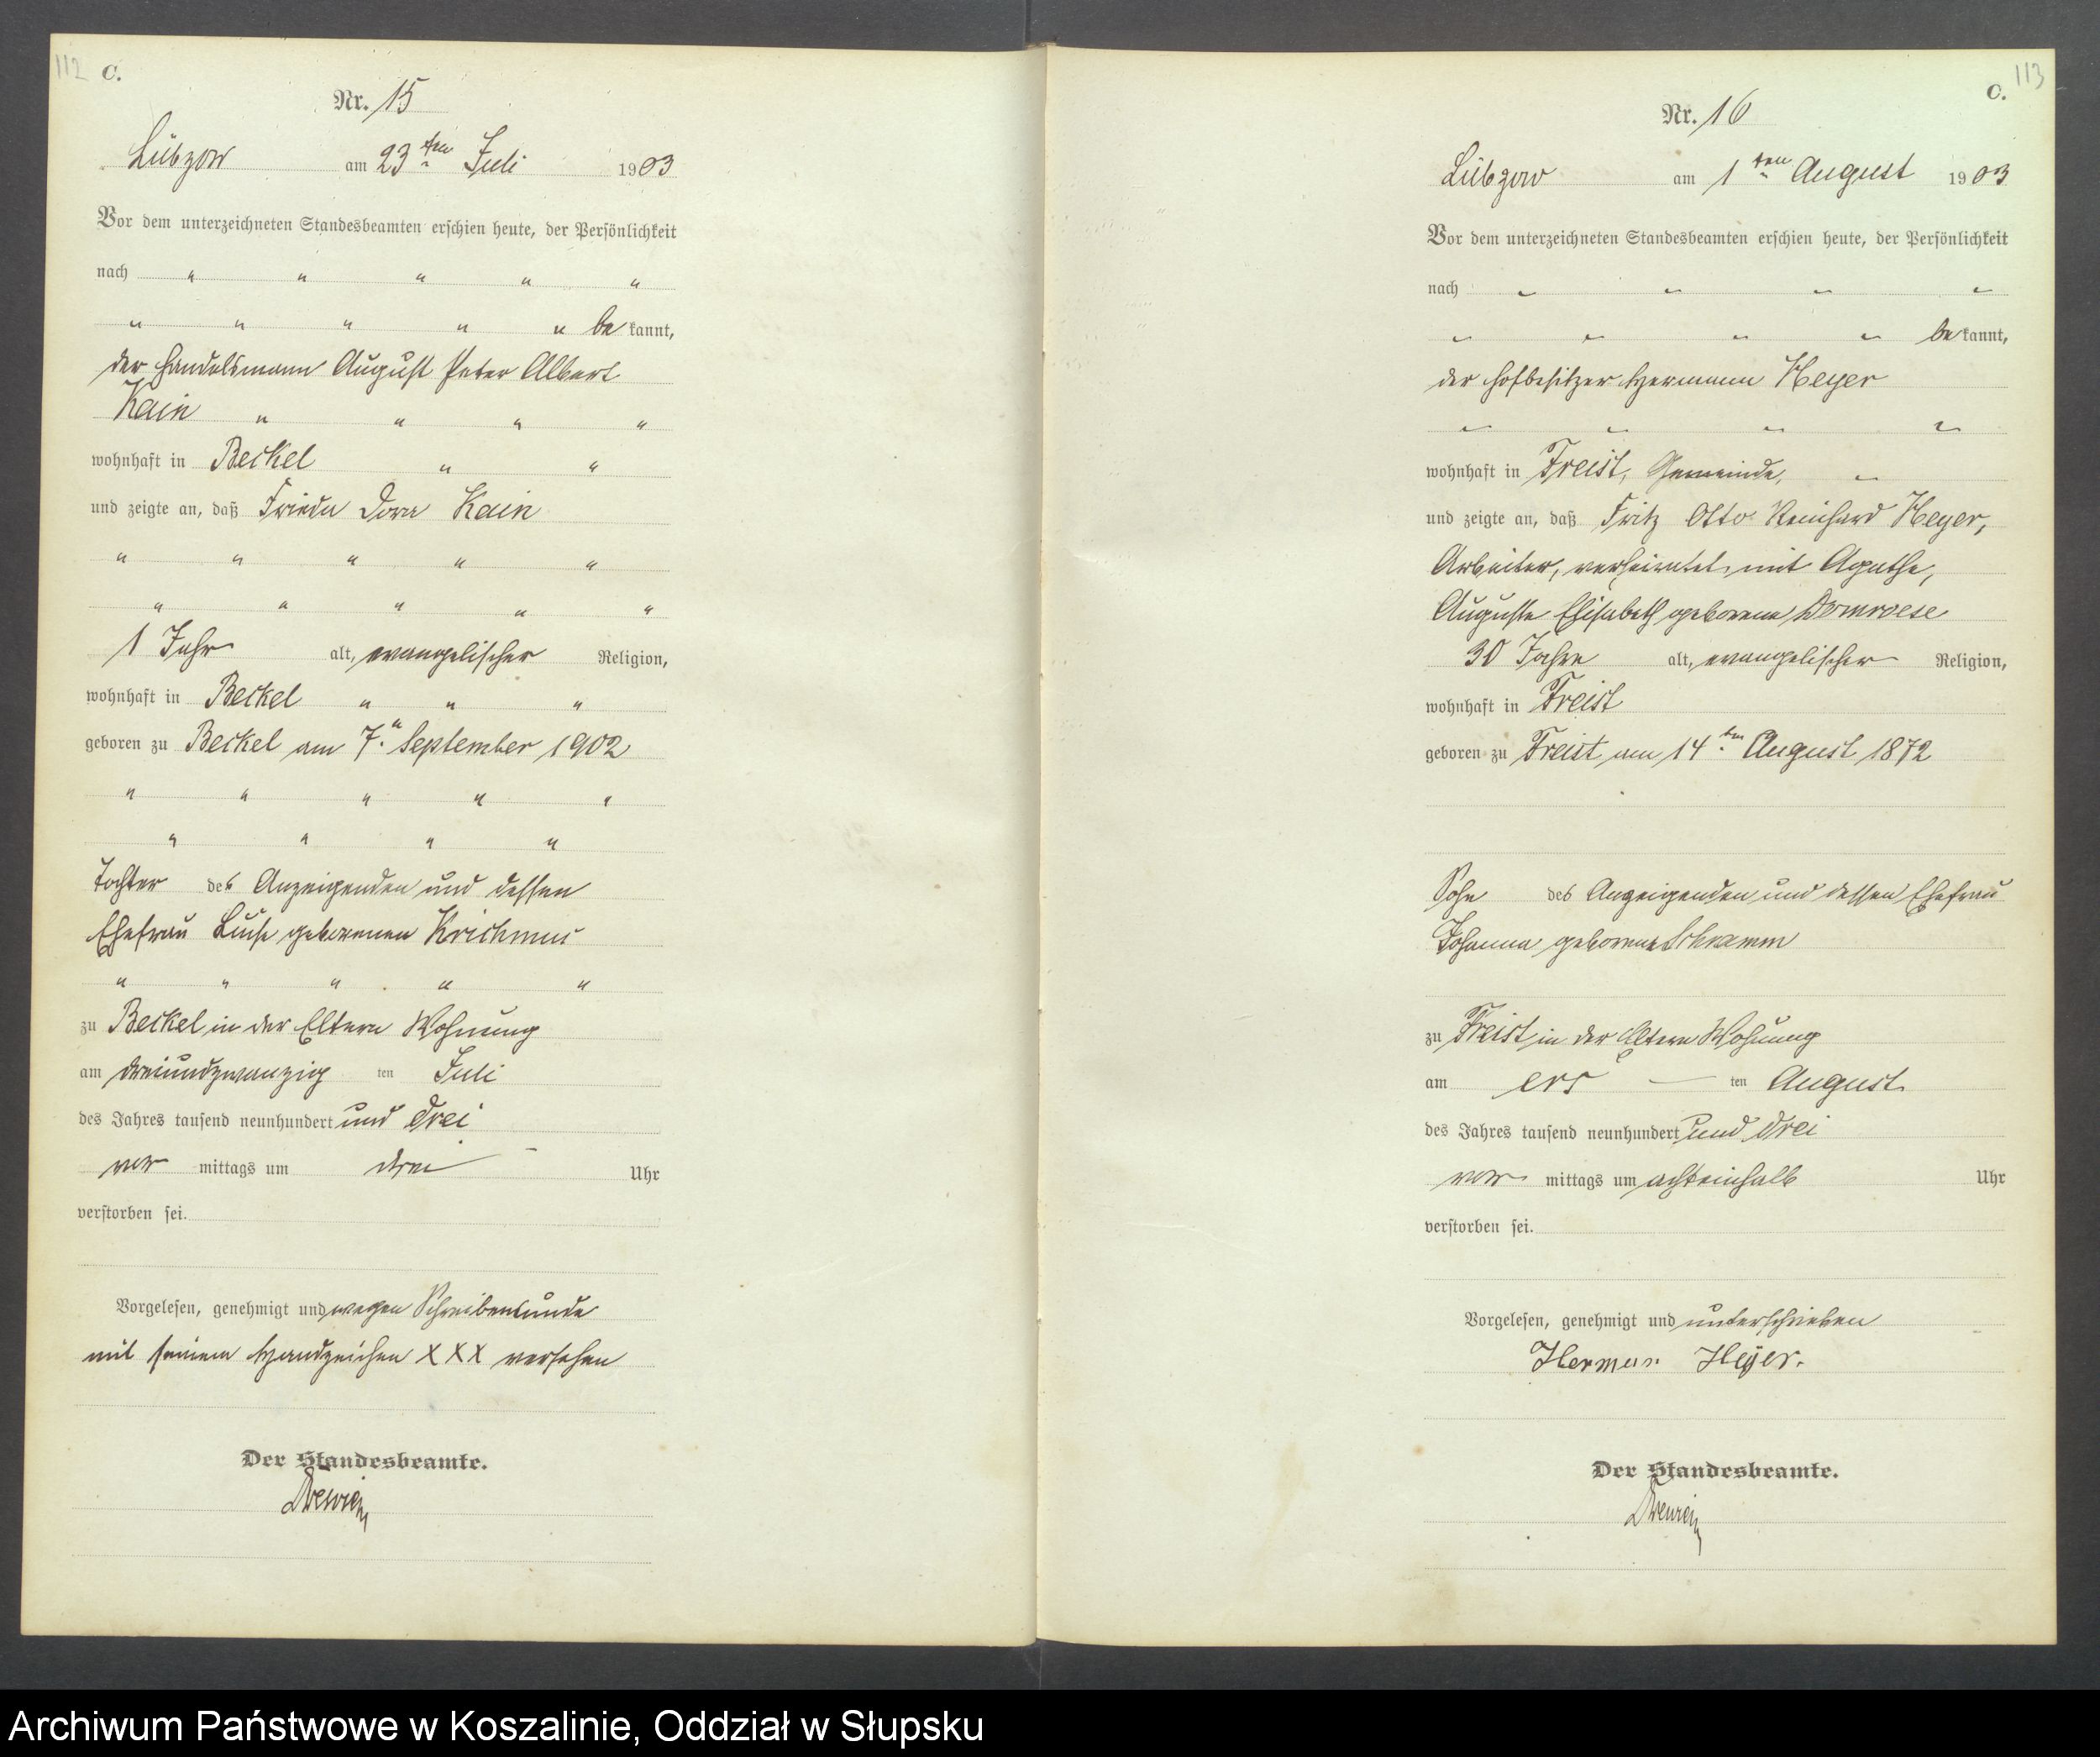 112 C.
Nr. 15
Lübzow am 23ten Juli 1903
Vor dem unterzeichneten Standesbeamten erschien heute, der Persönlichkeit
nach " " " " "
" " " " " be kannt,
der Handelsmann August Peter Albert
Kain " " " "
wohnhaft in Beckel " "
und zeigte an, daß Frieda Dora Kain
" " " " "
" " " " "
1 Jahr alt, evangelischer Religion,
wohnhaft in Beckel " " "
geboren zu Beckel am 7. September 1902
" " " " "
" " " "
Tochter des Anzeigenden und dessen
Ehefrau Luise geborenen Krichmus
" " " " "
zu Beckel in der Eltern Wohnung
am dreiundzwanzig ten Juli
des Jahres tausend neunhundert und drei
vor mittags um drei Uhr
verstorben sei.
Vorgelesen, genehmigt und wegen Schreibensunde
mit seinem Handzeichen XXX versehen
Der Standesbeamte.
113
C.
Nr. 16
Lübzow am 1ten August 1903
Vor dem unterzeichneten Standesbeamten erschien heute, der Persönlichkeit
nach " " " "
" " " " be kannt,
der Hofbesitzer Hermann Heyer
" " " "
wohnhaft in Freist, Gemeinde, "
und zeigte an, daß Fritz Otto Reinhard Heyer,
Arbeiter, verheiratet mit Agathe,
Auguste Elisabeth geborene Domroese
30 Jahre alt, evangelischer Religion,
wohnhaft in Freist
geboren zu Freist am 14ten August 1872
Sohn des Anzeigenden und dessen Ehefrau
Johanna geborene Schramm
zu Freist in der Eltern Wohnung
am ers — ten August
des Jahres tausend neunhundert und drei
vor mittags um achteinhalb Uhr
verstorben sei.
Vorgelesen, genehmigt und unterschrieben
Herman Heyer.
Der Standesbeamte.
Archiwum Państwowe w Koszalinie, Oddział w Słupsku